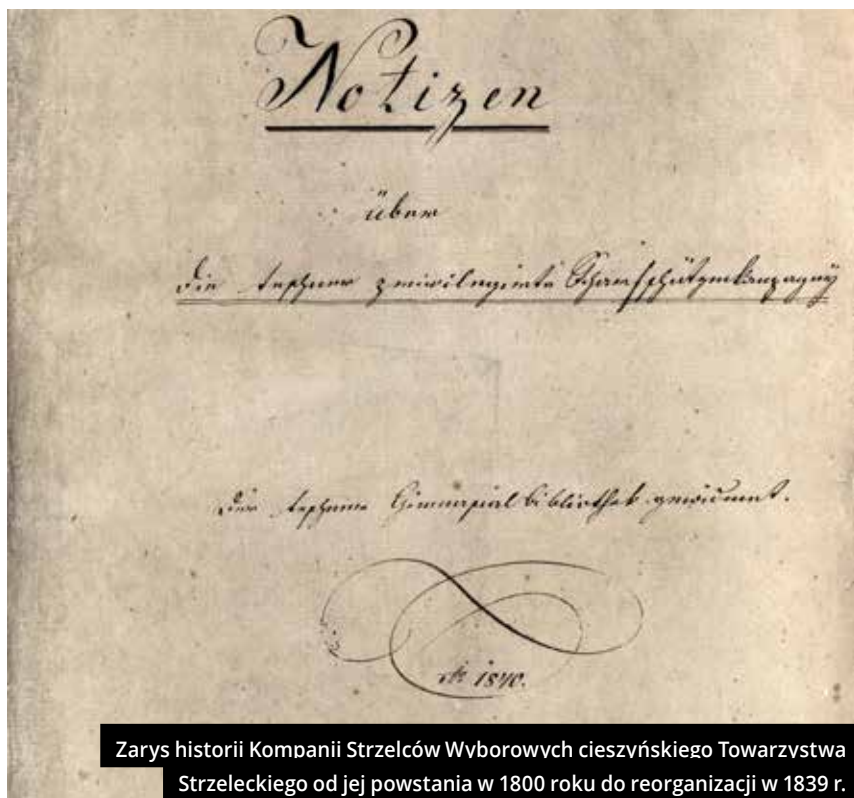 Notizen
über
die teschner privilegirte Scharfschützenkompagnÿ
Der teschner Gimnasialbibliothek gewidmet.
1840.
Zarys historii Kompanii Strzelców Wyborowych cieszyńskiego Towarzystwa
Strzeleckiego od jej powstania w 1800 roku do reorganizacji w 1839 r.